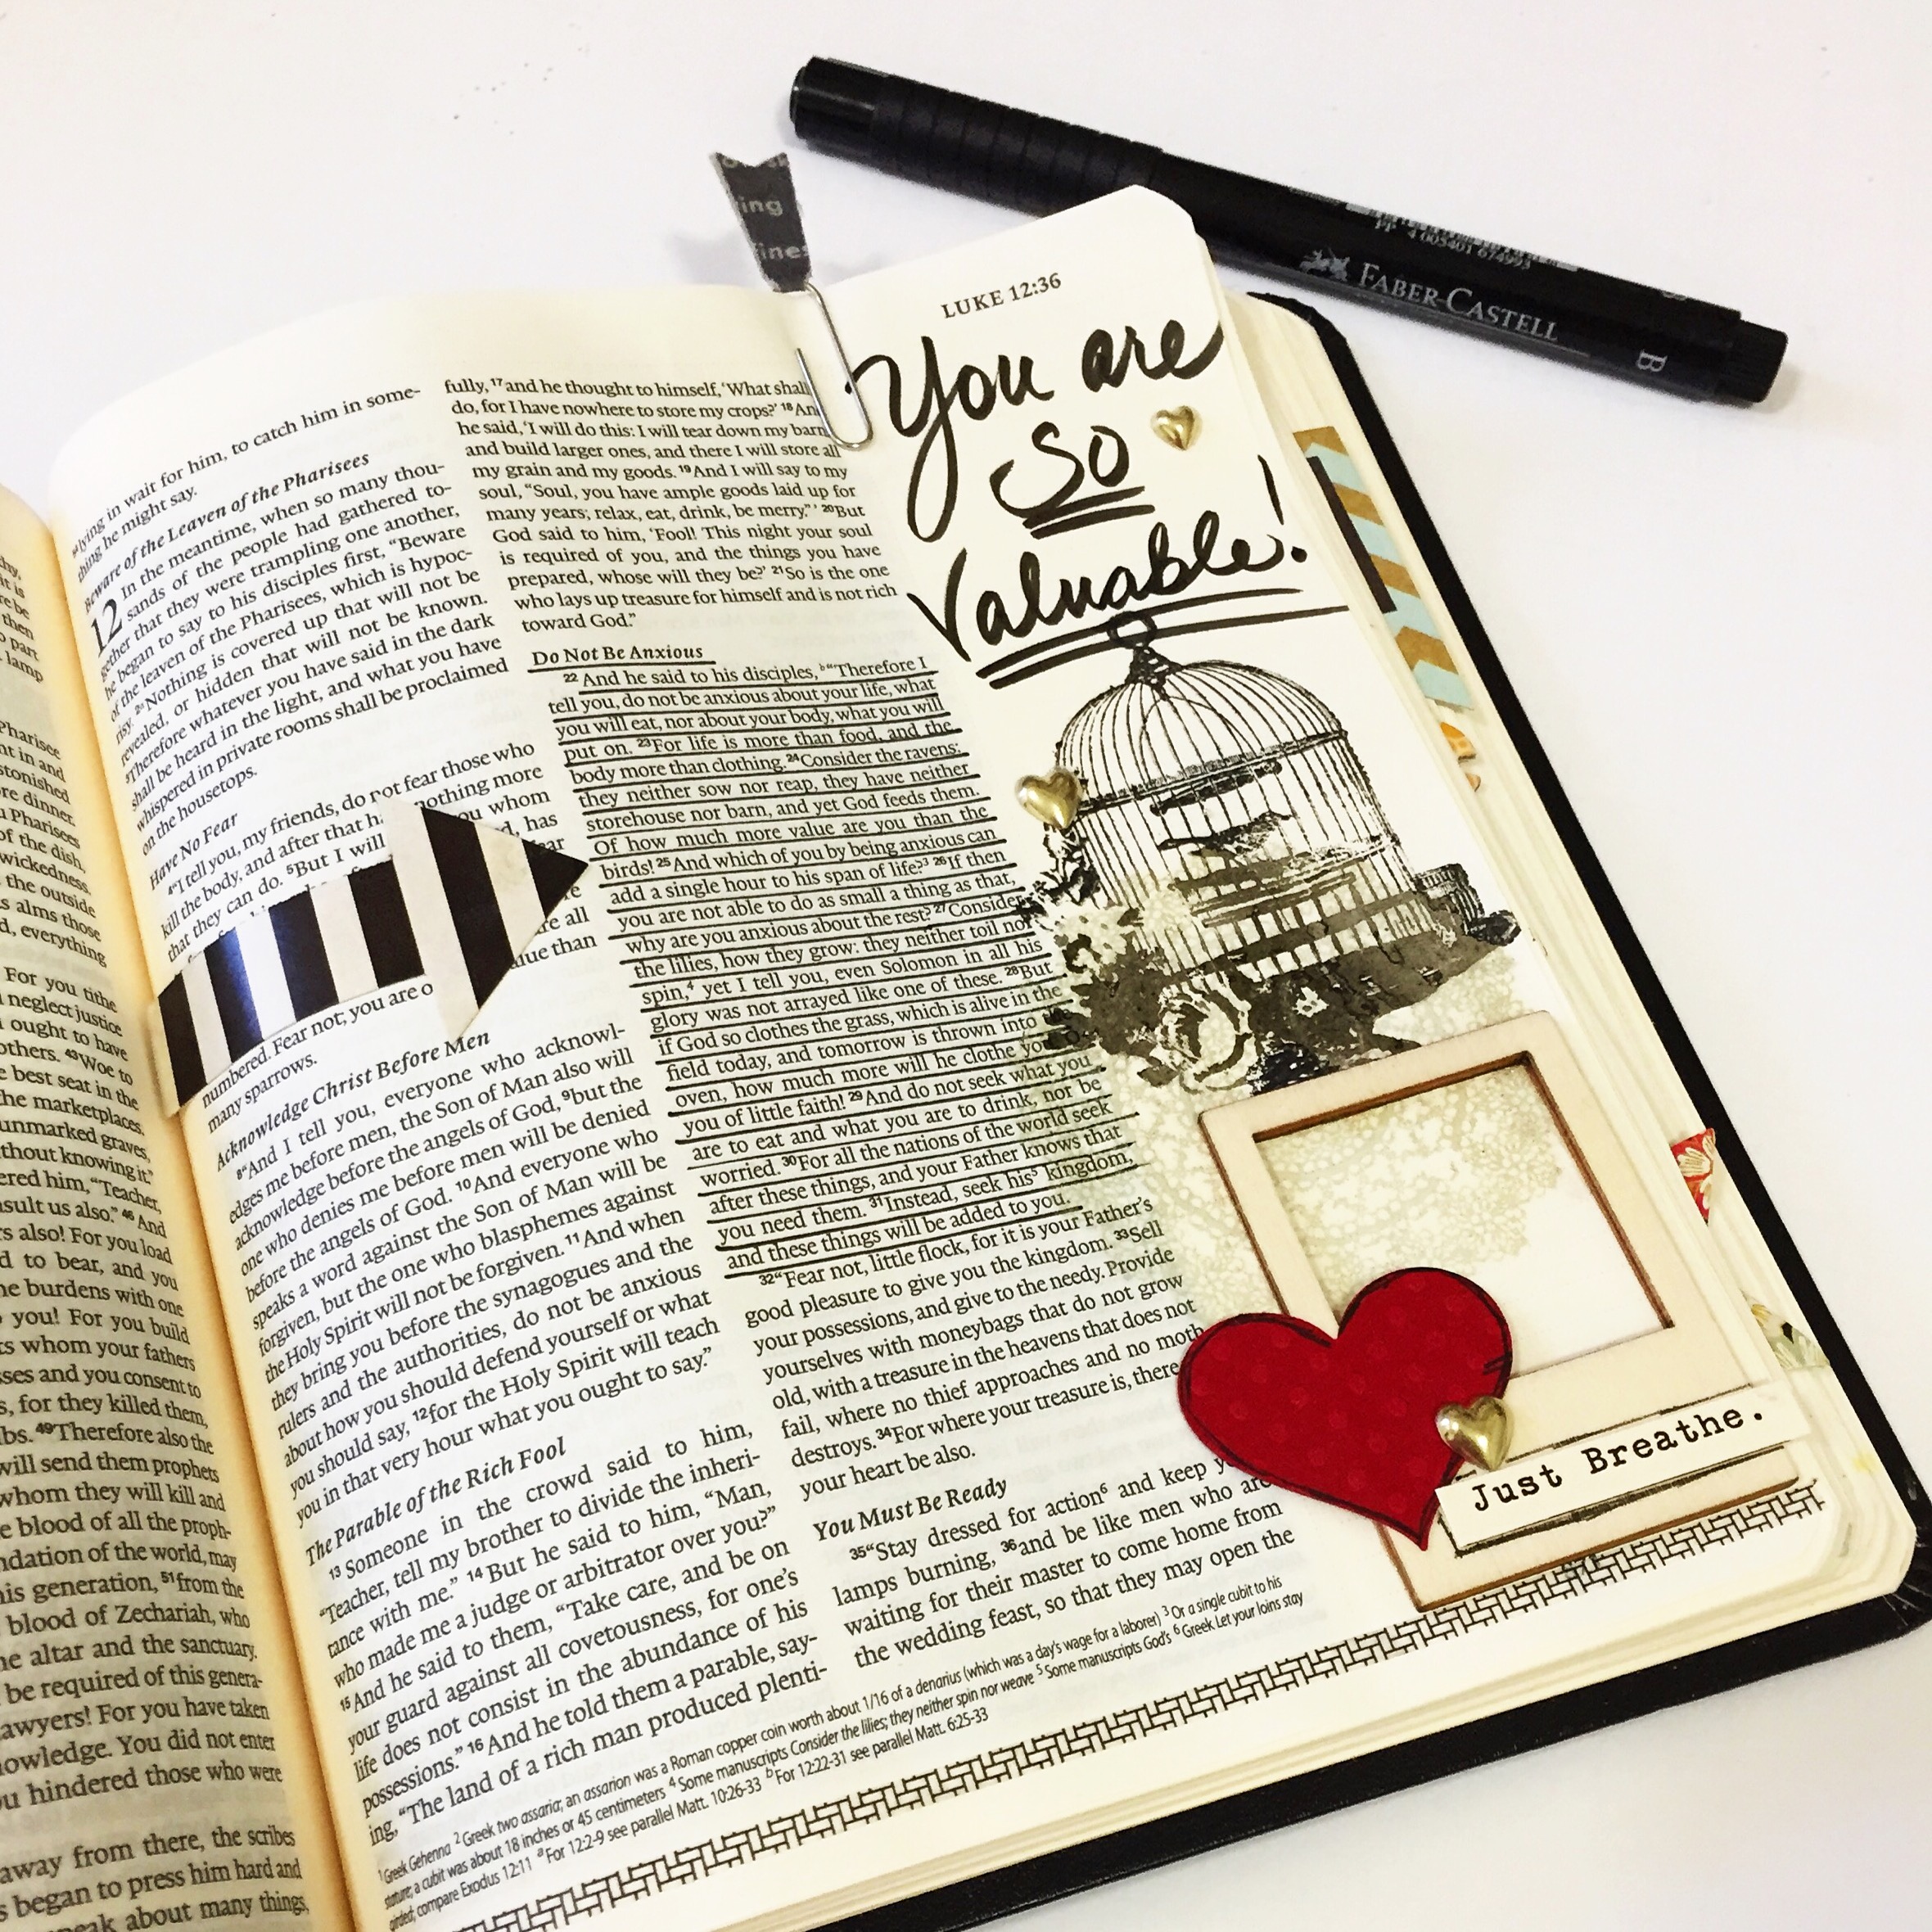 ing
fines
PP 4 005401 674993
FABER-CASTELL
B
LUKE 12:36
You are
so
Valuable!
Just Breathe.
lying in wait for him, to catch him in some-
thing he might say.
Beware of the Leaven of the Pharisees
12 In the meantime, when so many thou-
sands of the people had gathered to-
gether that they were trampling one another,
he began to say to his disciples first, “Beware
of the leaven of the Pharisees, which is hypoc-
risy. 2 Nothing is covered up that will not be
revealed, or hidden that will not be known.
3 Therefore whatever you have said in the dark
shall be heard in the light, and what you have
whispered in private rooms shall be proclaimed
on the housetops.
Have No Fear
4 “I tell you, my friends, do not fear those who
kill the body, and after that ha nothing more
that they can do. 5 But I will ou whom
d, has
ear
re
re all
alue than
numbered. Fear not; you are o
many sparrows.
Acknowledge Christ Before Men
8 “And I tell you, everyone who acknowl-
edges me before men, the Son of Man also will
acknowledge before the angels of God, 9 but the
one who denies me before men will be denied
before the angels of God. 10 And everyone who
speaks a word against the Son of Man will be
forgiven, but the one who blasphemes against
the Holy Spirit will not be forgiven. 11 And when
they bring you before the synagogues and the
rulers and the authorities, do not be anxious
about how you should defend yourself or what
you should say, 12 for the Holy Spirit will teach
you in that very hour what you ought to say.”
The Parable of the Rich Fool
13 Someone in the crowd said to him,
“Teacher, tell my brother to divide the inheri-
tance with me.” 14 But he said to him, “Man,
who made me a judge or arbitrator over you?”
15 And he said to them, “Take care, and be on
your guard against all covetousness, for one’s
life does not consist in the abundance of his
possessions.” 16 And he told them a parable, say-
ing, “The land of a rich man produced plenti-
fully, 17 and he thought to himself, ‘What shall
do, for I have nowhere to store my crops?’ 18 And
he said, ‘I will do this: I will tear down my barn
and build larger ones, and there I will store all
my grain and my goods. 19 And I will say to my
soul, “Soul, you have ample goods laid up for
many years; relax, eat, drink, be merry.”’ 20 But
God said to him, ‘Fool! This night your soul
is required of you, and the things you have
prepared, whose will they be?’ 21 So is the one
who lays up treasure for himself and is not rich
toward God.”
Do Not Be Anxious
22 And he said to his disciples, b “Therefore I
tell you, do not be anxious about your life, what
you will eat, nor about your body, what you will
put on. 23 For life is more than food, and the
body more than clothing. 24 Consider the ravens:
they neither sow nor reap, they have neither
storehouse nor barn, and yet God feeds them.
Of how much more value are you than the
birds! 25 And which of you by being anxious can
add a single hour to his span of life? 3 26 If then
you are not able to do as small a thing as that,
why are you anxious about the rest? 27 Consider
the lilies, how they grow: they neither toil nor
spin, 4 yet I tell you, even Solomon in all his
glory was not arrayed like one of these. 28 But
if God so clothes the grass, which is alive in the
field today, and tomorrow is thrown into the
oven, how much more will he clothe you, O
you of little faith! 29 And do not seek what you
are to eat and what you are to drink, nor be
worried. 30 For all the nations of the world seek
after these things, and your Father knows that
you need them. 31 Instead, seek his 5 kingdom,
and these things will be added to you.
32 “Fear not, little flock, for it is your Father’s
good pleasure to give you the kingdom. 33 Sell
your possessions, and give to the needy. Provide
yourselves with moneybags that do not grow
old, with a treasure in the heavens that does not
fail, where no thief approaches and no moth
destroys. 34 For where your treasure is, there
your heart be also.
You Must Be Ready
35 “Stay dressed for action 6 and keep y
lamps burning, 36 and be like men who are
waiting for their master to come home from
the wedding feast, so that they may open the
1 Greek Gehenna 2 Greek two assaria; an assarion was a Roman copper coin worth about 1/16 of a denarius (which was a day's wage for a laborer) 3 Or a single cubit to his
stature; a cubit was about 18 inches or 45 centimeters 4 Some manuscripts Consider the lilies; they neither spin nor weave 5 Some manuscripts God's 6 Greek Let your loins stay
girded; compare Exodus 12:11 a For 12:2-9 see parallel Matt. 10:26-33 b For 12:22-31 see parallel Matt. 6:25-33
then
part
lamp
Pharisee
nt in and
stonished
re dinner.
u Pharisees
of the dish,
wickedness.
the outside
s alms those
d, everything
For you tithe
neglect justice
ought to have
others. 43 Woe to
e best seat in the
he marketplaces.
unmarked graves,
thout knowing it.”
ered him, “Teacher,
sult us also.” 46 And
s also! For you load
d to bear, and you
he burdens with one
you! For you build
ts whom your fathers
sses and you consent to
s, for they killed them,
bs. 49 Therefore also the
will send them prophets
whom they will kill and
e blood of all the proph-
ndation of the world, may
his generation, 51 from the
blood of Zechariah, who
he altar and the sanctuary.
be required of this genera-
awyers! For you have taken
nowledge. You did not enter
ou hindered those who were
away from there, the scribes
s began to press him hard and
peak about many things,